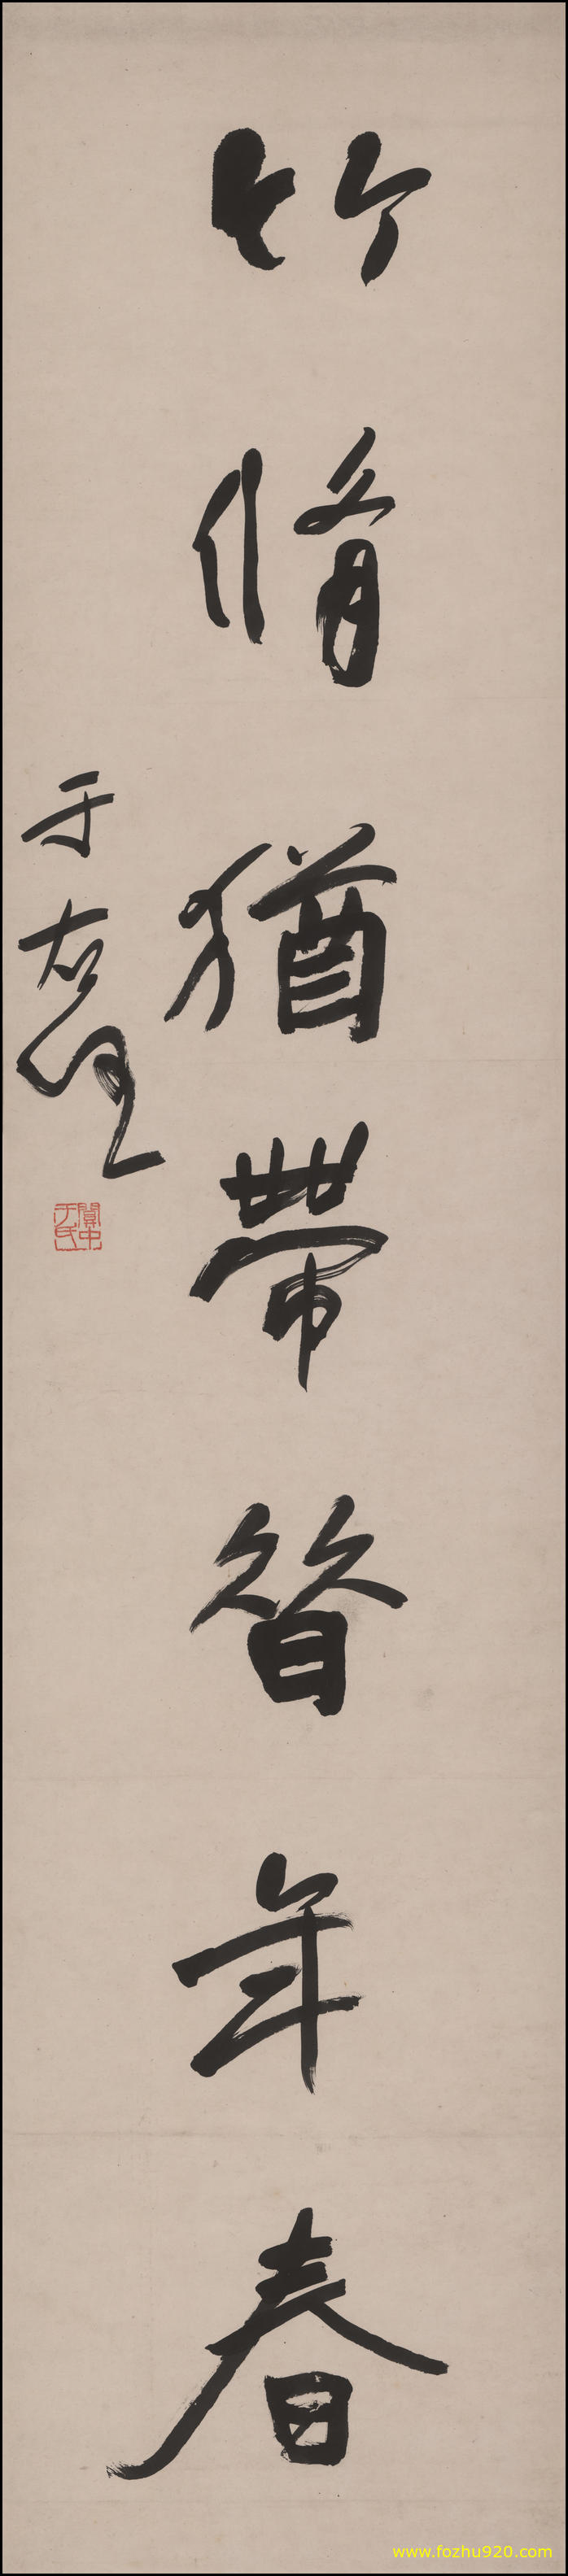 竹脩猶帶晉年春
于右任
關中于氏
www.fozhu920.com